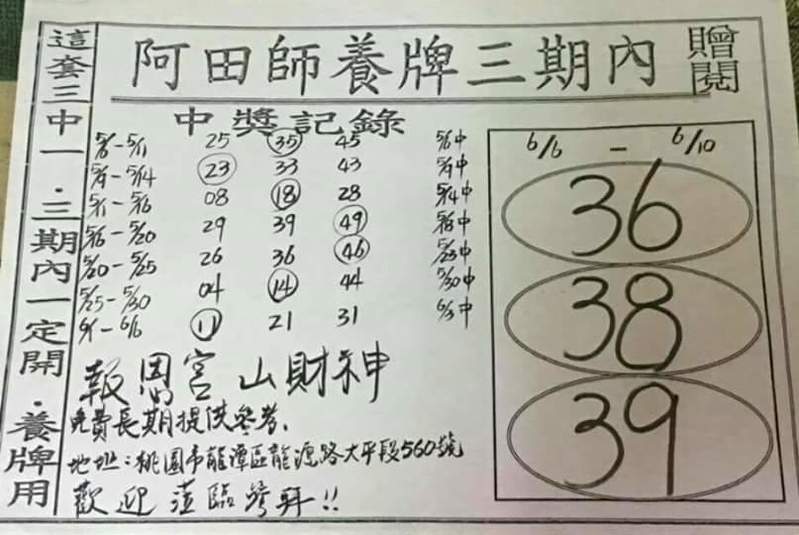 阿田師養牌三期內
贈閱
這套三中一・三期內一定開・養牌用
中獎記錄
5/6-5/11 25 35 45 5/6中
5/9-5/14 23 33 43 5/9中
5/11-5/16 08 18 28 5/14中
5/16-5/20 29 39 49 5/18中
5/20-5/25 26 36 46 5/23中
5/25-5/30 04 14 44 5/30中
6/1-6/6 11 21 31 6/3中
報恩宮 山財神
免費長期提供參考.
地址:桃園市龍潭區龍源路大平段560號
歡迎蒞臨參拜!!
6/6 - 6/10
36
38
39